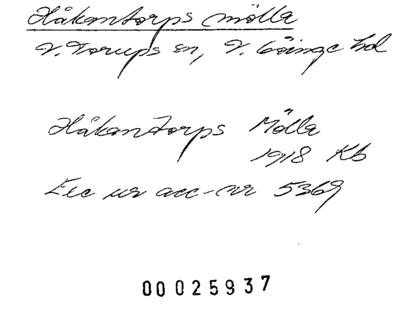 Håkantorps mölla
V. Torups sn, V. Göinge hd
Håkantorps Mölla
1918 Kb
Exc ur acc-nr 5369
00025937